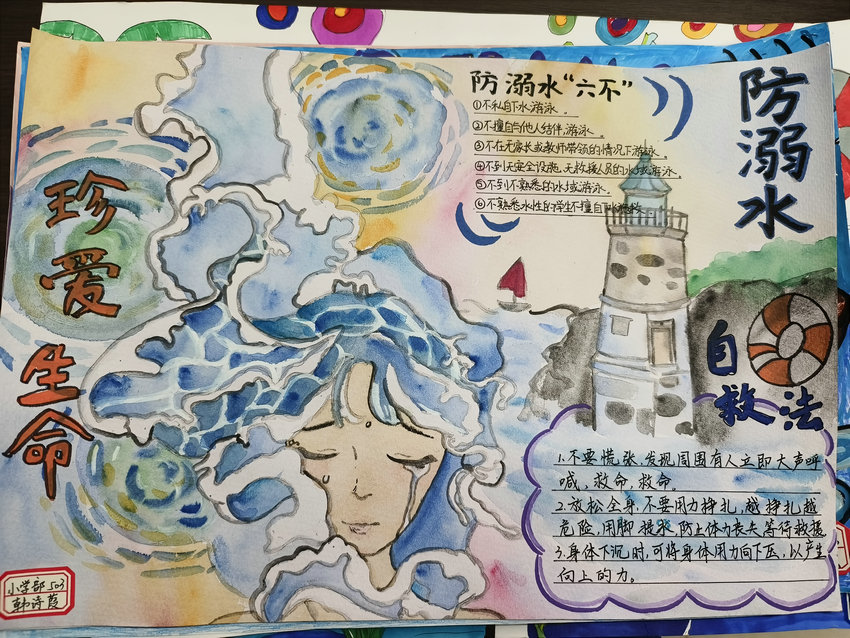 珍爱生命
防溺水“六不”
①不私自下水游泳。
②不擅自与他人结伴游泳。
③不在无家长或教师带领的情况下游泳。
④不到无安全设施、无救援人员的水域游泳。
⑤不到不熟悉的水域游泳。
⑥不熟悉水性的学生不擅自下水施救。
防溺水
自救法
1.不要慌张,发现周围有人立即大声呼
喊、救命,救命。
2.放松全身,不要用力挣扎,越挣扎越
危险,用脚提水,防止体力丧失等待救援
3.身体下沉时,可将身体用力向下压,以产生
向上的力。
小学部503
韩诗菱